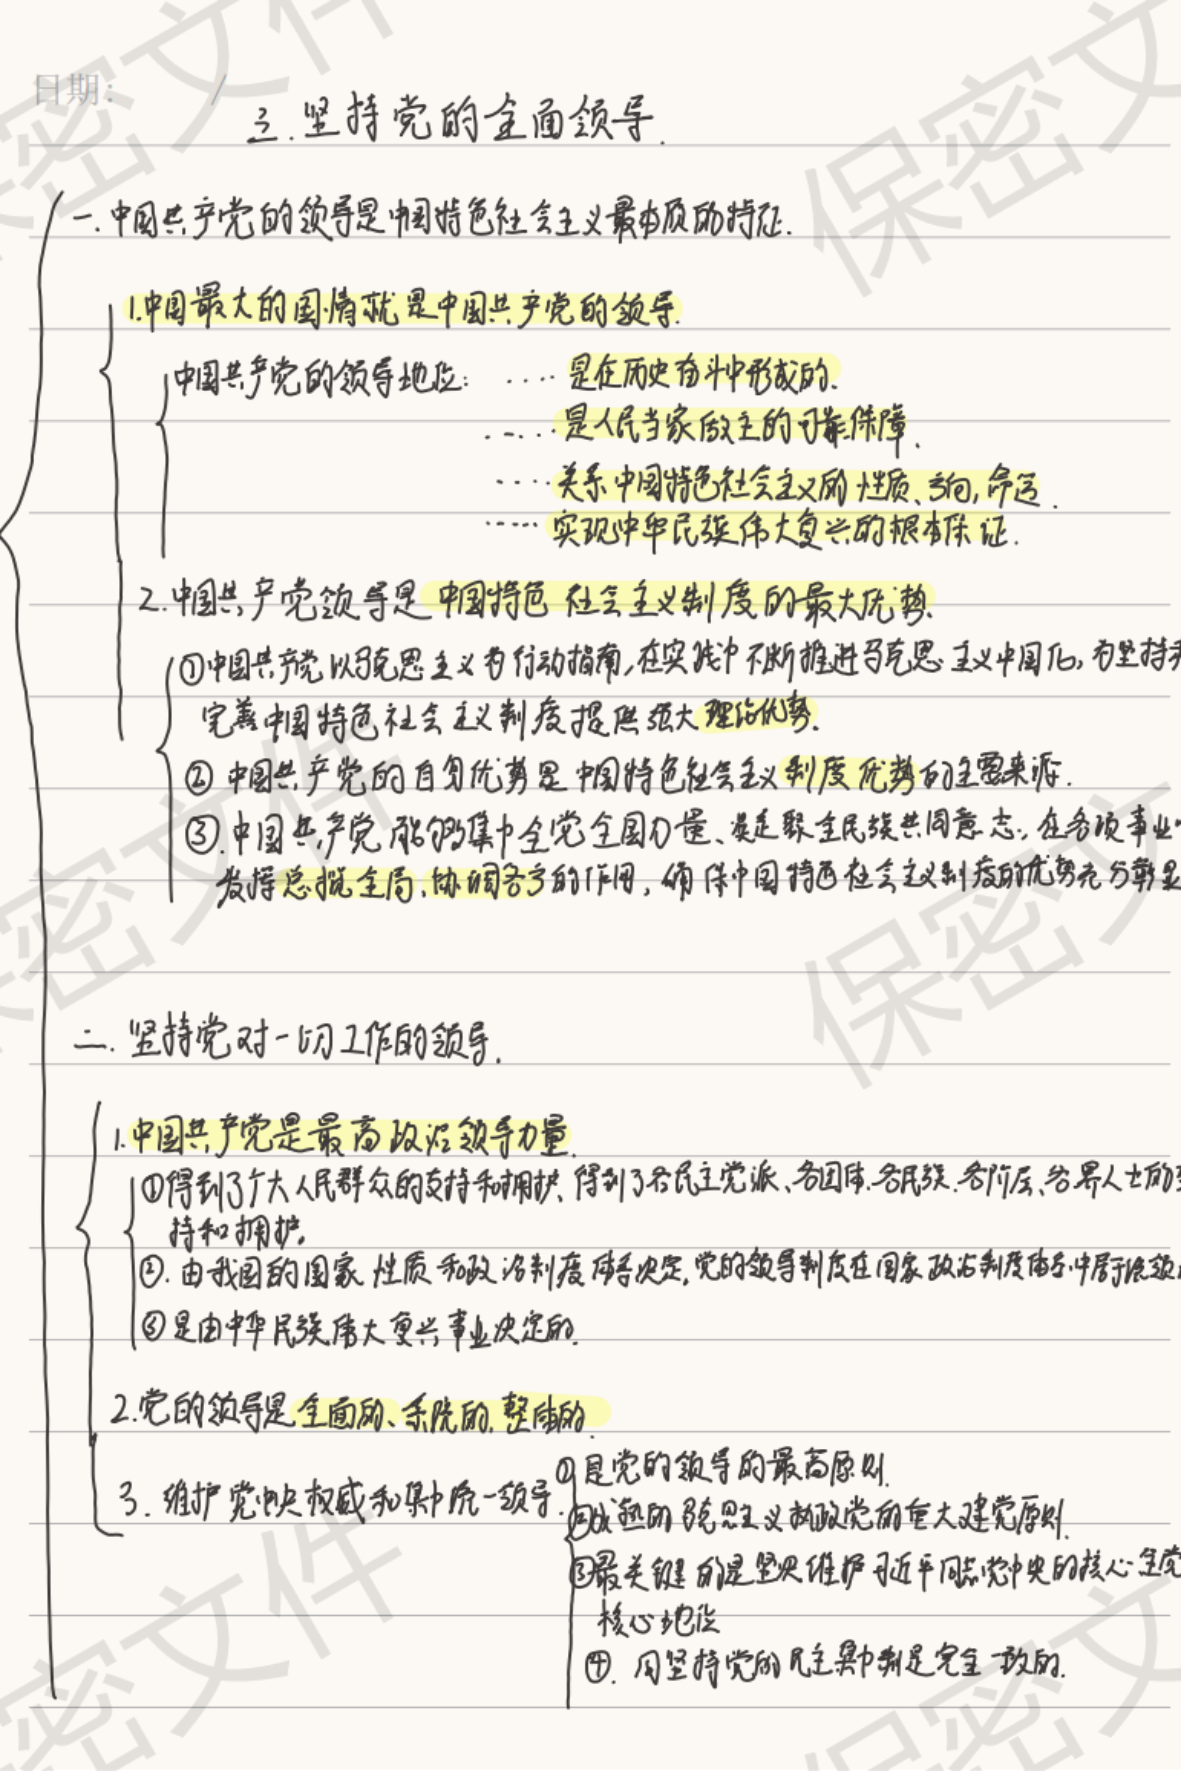 日期: /
三.坚持党的全面领导.
一.中国共产党的领导是中国特色社会主义最本质的特征.
1.中国最大的国情就是中国共产党的领导.
中国共产党的领导地位: .... 是在历史奋斗中形成的.
..... 是人民当家做主的可靠保障.
.... 关系中国特色社会主义的性质、方向,命运.
..... 实现中华民族伟大复兴的根本保证.
2.中国共产党领导是中国特色社会主义制度的最大优势.
①中国共产党以马克思主义为行动指南,在实践中不断推进马克思主义中国化,为坚持和
完善中国特色社会主义制度提供强大理论优势.
②中国共产党的自身优势是中国特色社会主义制度优势的主要来源.
③.中国共产党能够集中全党全国力量、凝聚全民族共同意志,在各项事业中
发挥总揽全局,协调各方的作用,确保中国特色社会主义制度的优势充分彰显
二.坚持党对一切工作的领导.
1.中国共产党是最高政治领导力量.
①得到了广大人民群众的支持和拥护、得到了各民主党派、各团体.各民族.各阶层、各界人士的支
持和拥护.
②.由我国的国家性质和政治制度体系决定,党的领导制度在国家政治制度体系中居于统领
③是由中华民族伟大复兴事业决定的.
2.党的领导是全面的、系统的,整体的.
3.维护党中央权威和集中统一领导.
①是党的领导的最高原则.
②成熟的马克思主义执政党的重大建党原则.
③最关键的是坚决维护习近平同志党中央的核心全党
核心地位
④.同坚持党的民主集中制是完全一致的.
保密文件
保密文
保密文件
保密文
保密文件
保密文